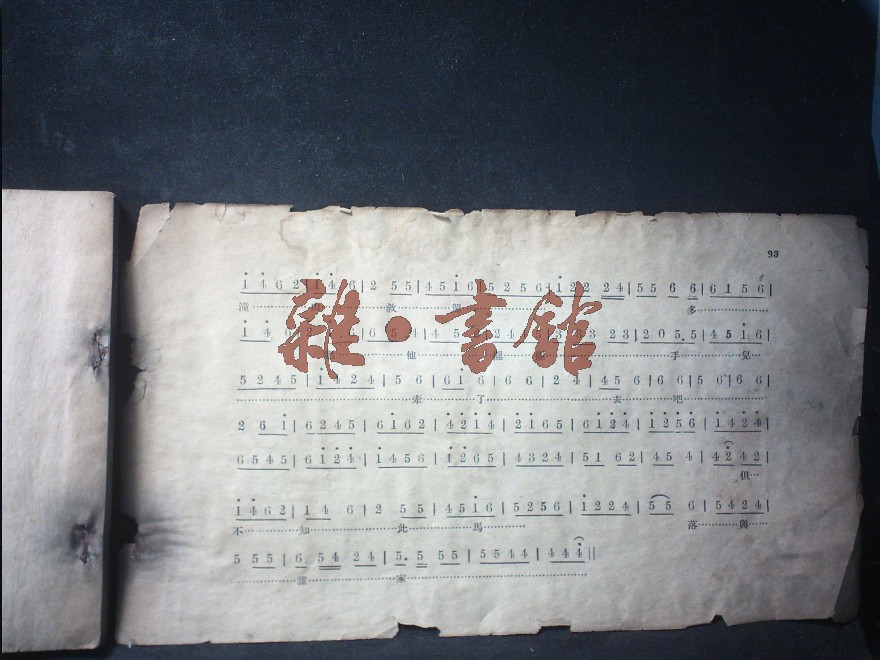 93
1 4 6 2 | 1 4 6 | 2 5 5 | 4 5 1 6 | 5 2 5 6 | 1 2 2 2 4 | 5 5 6 6 | 6 1 5 6 |
潼 救 多
雜·書館
他 手 兒
5 2 4 5 | 1 4 2 4 | 5 6 6 | 6 1 6 | 6 6 6 | 2 4 | 4 5 6 | 6 6 6 | 5 6 | 6 6 |
牽 了 去 吧
2 6 1 | 6 2 4 5 | 6 1 6 2 | 4 2 1 4 | 2 1 6 5 | 6 1 2 4 | 1 2 5 6 | 1 4 2 4 |
6 5 4 5 | 6 1 2 4 | 1 4 5 6 | 1 2 6 5 | 4 3 2 4 | 5 1 6 2 | 4 5 4 | 4 2 4 2 |
但
1 4 6 2 | 1 4 6 | 2 5 5 | 4 5 1 6 | 5 2 5 6 | 1 2 2 4 | 5 5 6 | 5 4 2 4 |
不 知 此 馬 落 與
5 5 5 | 6 5 4 2 4 | 5. 5 5 5 | 5 5 4 4 | 4 4 4 ||
誰 家